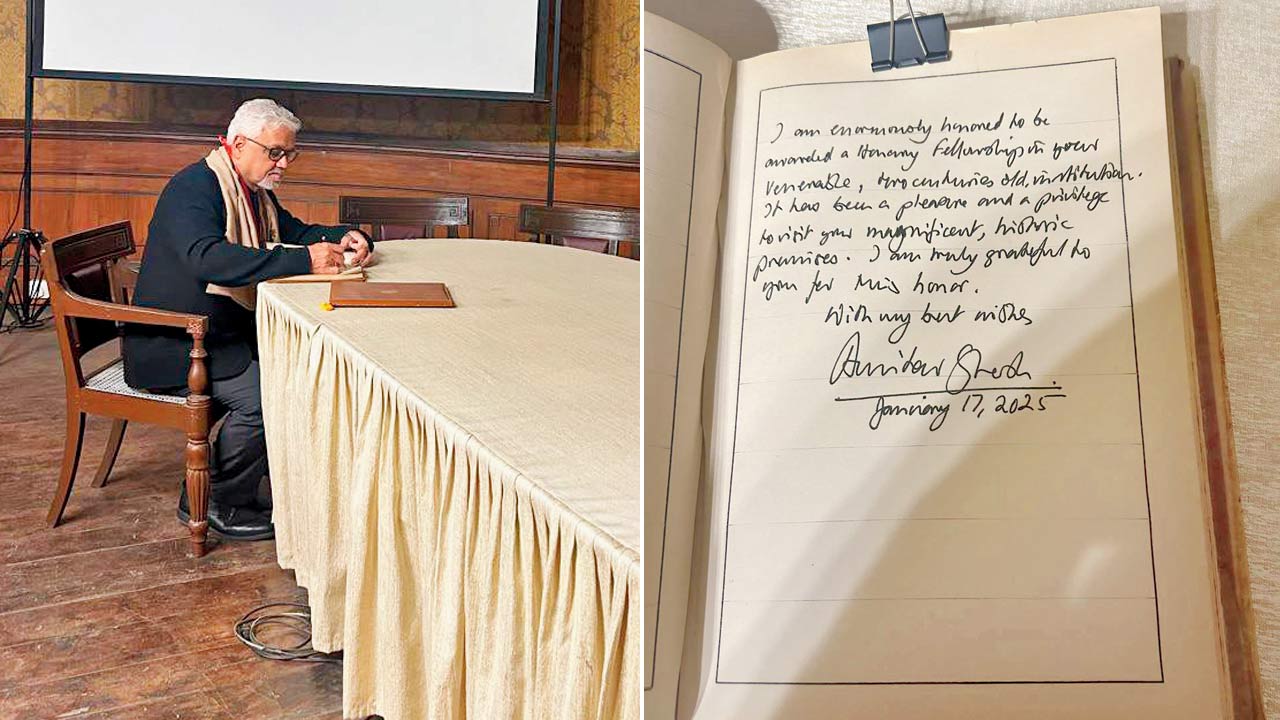 I am enormously honored to be
awarded a Honorary Fellowship in your
venerable, two centuries old, institution.
It has been a pleasure and a privilege
to visit your magnificent, historic
premises. I am truly grateful to
you for this honor.
With my best wishes
Amitav Ghosh.
January 17, 2025